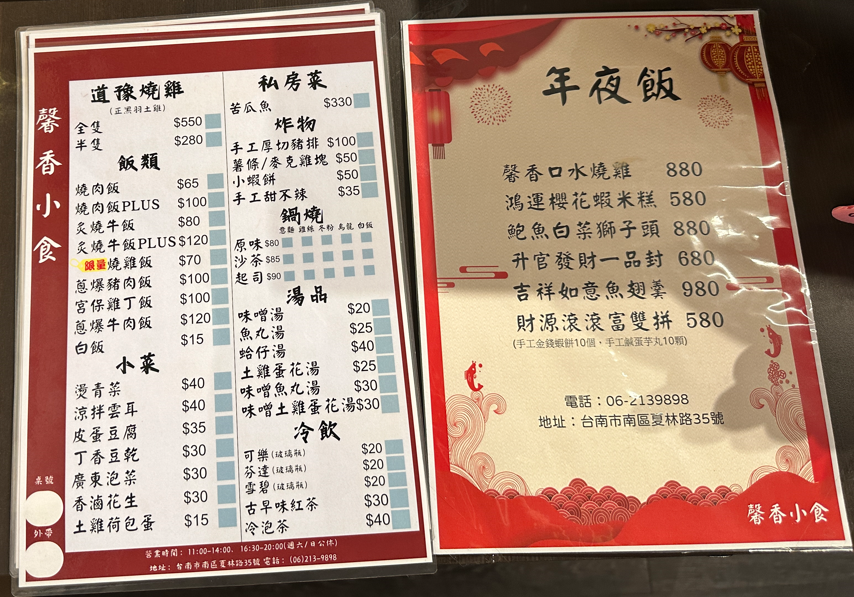 馨香小食
道豫燒雞
(正黑羽土雞)
全隻 $550
半隻 $280
飯類
燒肉飯 $65
燒肉飯PLUS $100
炙燒牛飯 $80
炙燒牛飯PLUS $120
限量 燒雞飯 $70
蔥爆豬肉飯 $100
宮保雞丁飯 $100
蔥爆牛肉飯 $120
白飯 $15
小菜
燙青菜 $40
涼拌雲耳 $40
皮蛋豆腐 $35
丁香豆乾 $30
廣東泡菜 $30
香滷花生 $30
土雞荷包蛋 $15
私房菜
苦瓜魚 $330
炸物
手工厚切豬排 $100
薯條/麥克雞塊 $50
小蝦餅 $50
手工甜不辣 $35
鍋燒
意麵 雞絲 冬粉 烏龍 白飯
原味 $80
沙茶 $85
起司 $90
湯品
味噌湯 $20
魚丸湯 $25
蛤仔湯 $40
土雞蛋花湯 $25
味噌魚丸湯 $30
味噌土雞蛋花湯 $30
冷飲
可樂(玻璃瓶) $20
芬達(玻璃瓶) $20
雪碧(玻璃瓶) $20
古早味紅茶 $30
冷泡茶 $40
桌號
外帶
營業時間：11:00-14:00. 16:30-20:00(週六/日公休)
地址：台南市南區夏林路35號 電話：(06)213-9898
年夜飯
馨香口水燒雞 880
鴻運櫻花蝦米糕 580
鮑魚白菜獅子頭 880
升官發財一品封 680
吉祥如意魚翅羹 980
財源滾滾富雙拼 580
(手工金錢蝦餅10個，手工鹹蛋芋丸10顆)
電話：06-2139898
地址：台南市南區夏林路35號
馨香小食